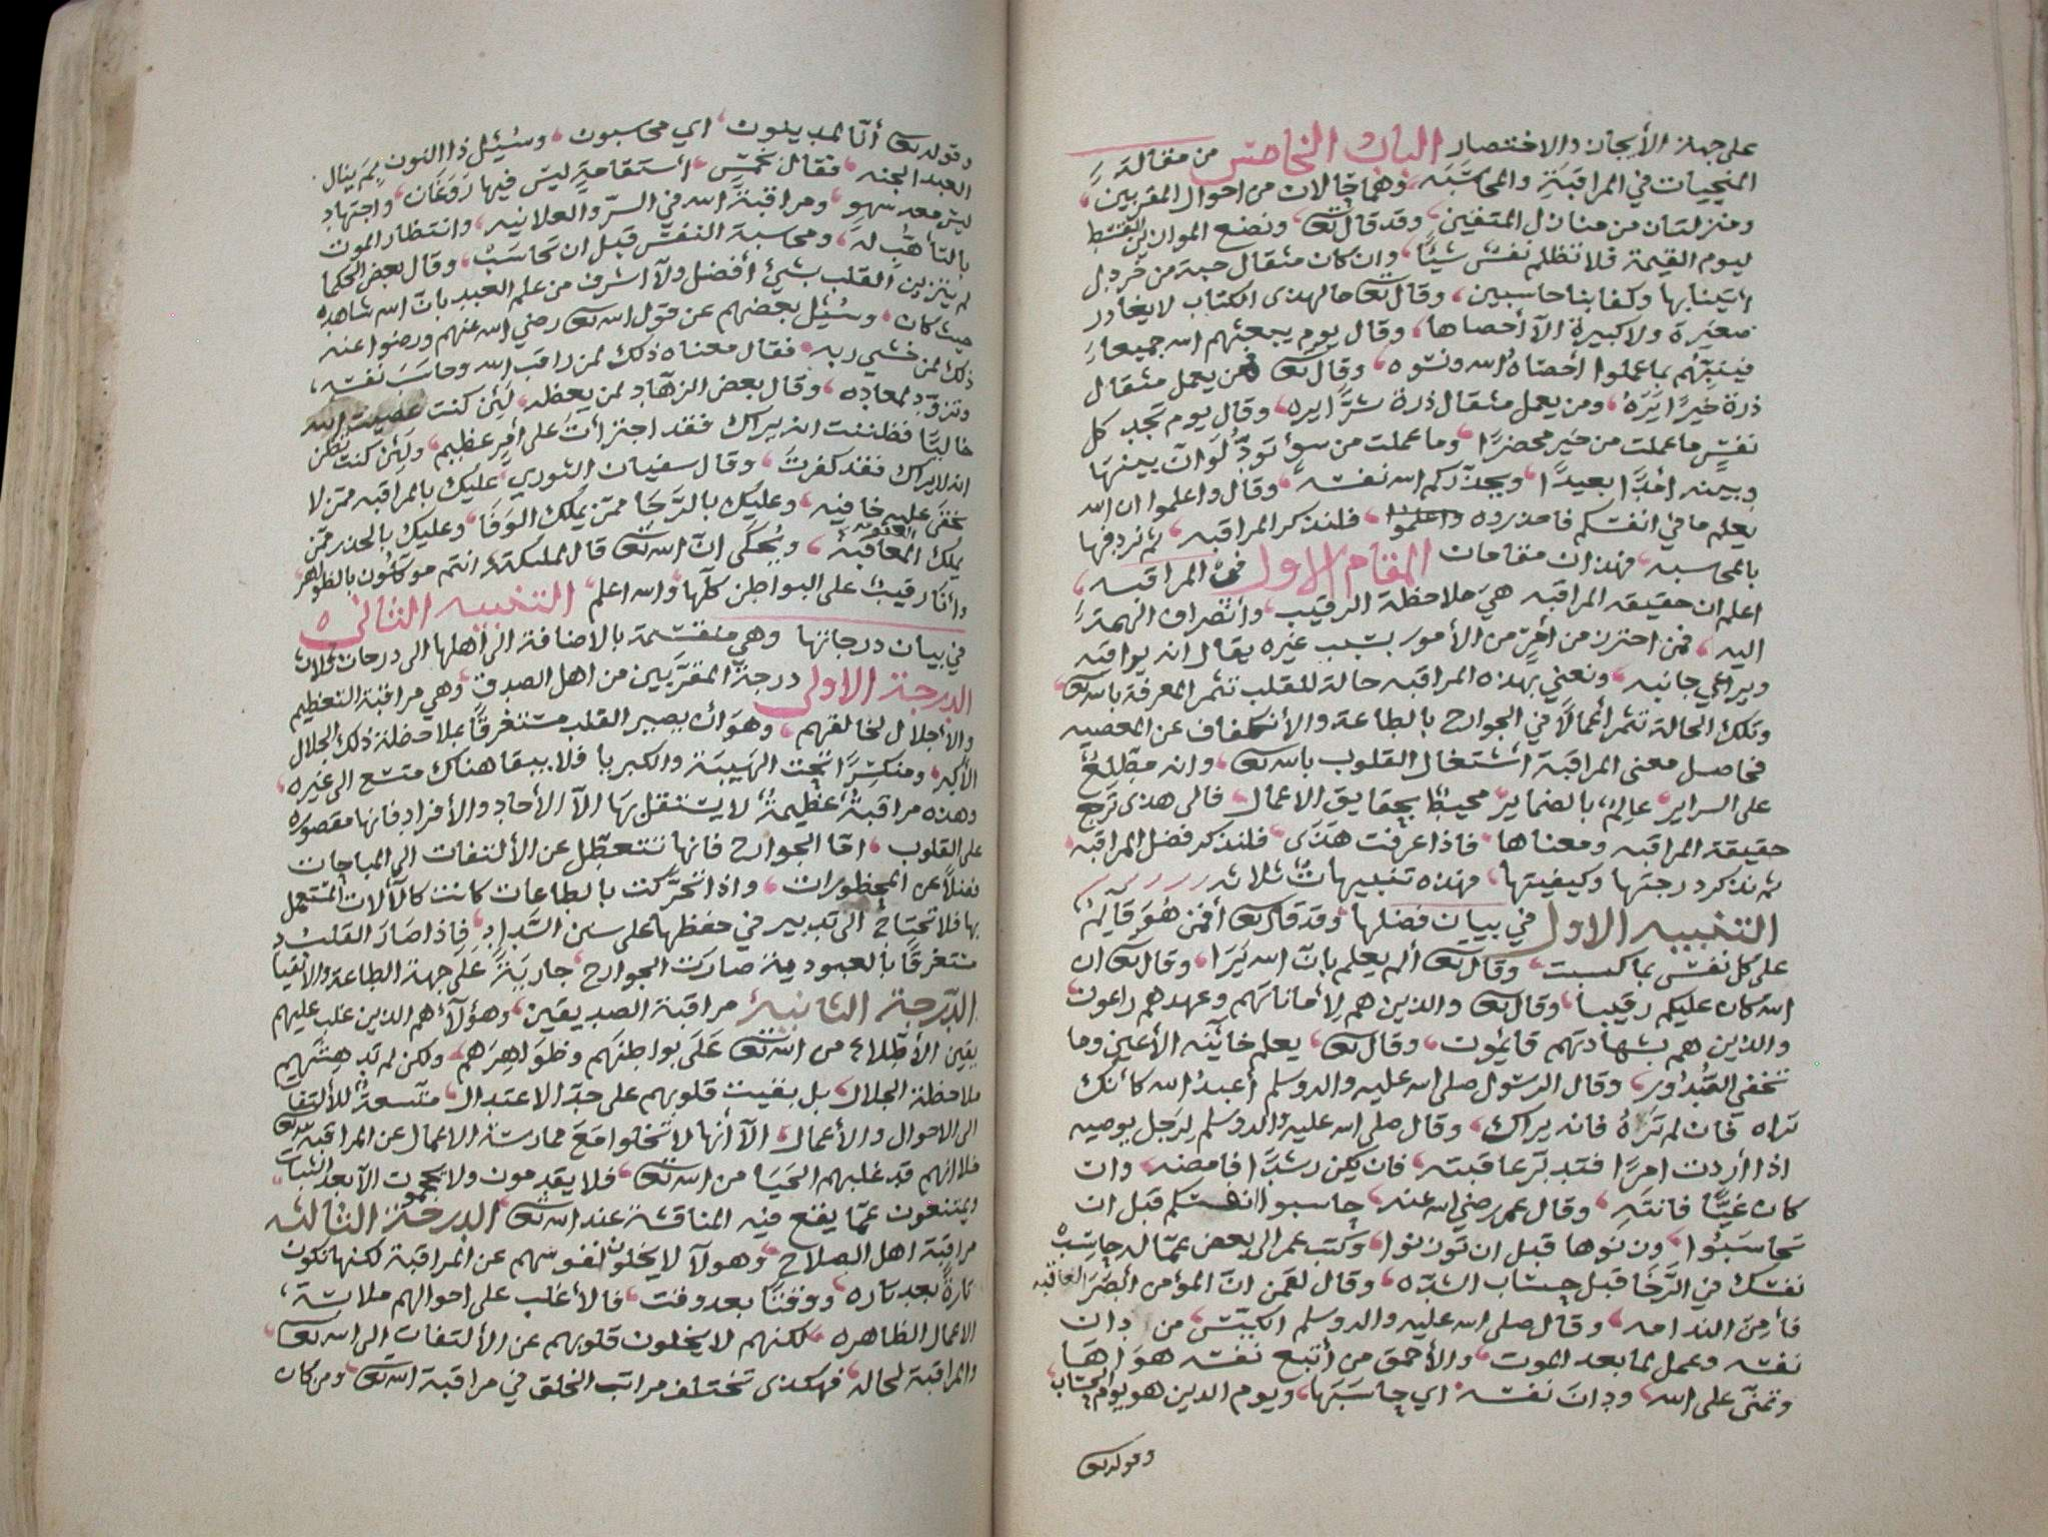 على جهة الأيجاز والاختصار الباب الخامس من مقالة
المنجييات في المراقبة والمحاسبه وهما حالان من احوال المقربين
ومنزلتان من منازل المتقين وقد قال تع ونضع الموازين القسط
ليوم القيمة فلا تظلم نفس شيئًا وان كان مثقال حبة من خردل
اتينا بها وكفا بنا حاسبين وقال تع ما لهذى الكتاب لا يغادر
صغيرة ولا كبيرة الآ أحصاها وقال يوم يبعثهم الله جميعا
فينبئهم بما عملوا أحصاه الله ونسوه وقال تع فمن يعمل مثقال
ذرة خيرًا يره ومن يعمل مثقال ذرة شرًا يره وقال يوم تجد كل
نفسٍ ما عملت من خير محضرًا وما عملت من سؤ تودّ لو ان بينها
وبينه امدًا بعيدًا ويحذّركم الله نفسه وقال واعلموا ان الله
يعلم ما في انفسكم فاحذروه واعلموا فلنذكر المراقبه ثم نردفها
بالمحاسبه فهذان مقامان المقام الاول في المراقبه
اعلم ان حقيقه المراقبه هي ملاحظة الرقيب وأنصراف الهمة
اليه فمن احترز من أمرٍ من الأمور بسبب غيره يقال انه يراقبه
ويراعي جانبه ونعني بهذه المراقبه حالة للقلب تثمر المعرفة بالله تع
وتلك الحالة تثمر أعمالًا في الجوارح بالطاعة والأنكفاف عن المعصيه
فحاصل معنى المراقبة أشتغال القلوب بالله تع وانه مطّلعٌ
على السراير عالمٌ بالضماير محيطٌ بحقايق الاعمال فالى هذى ترجع
حقيقة المراقبه ومعناها فاذا عرفت هذى فلنذكر فضل المراقبه
ثم نذكر درجتها وكيفيتها فهذه تنبيهات ثلاثه
التنبيه الاول في بيان فضلها وقد قال تع أفمن هو قايمٌ
على كل نفس بما كسبت وقال تع ألم يعلم بانّ الله يرا وقال تع ان
الله كان عليكم رقيبا وقال تع والذين هم لأماناتهم وعهدهم راعون
والذين هم بشهادتهم قايمون وقال تع يعلم خائنه الأعين وما
تخفي الصدور وقال الرسول صلى الله عليه واله وسلم أعبد الله كأنك
تراه فان لم تراه فانه يراك وقال صلى الله عليه واله وسلم لرجل يوصيه
اذا أردت امرًا فتدبر عاقبته فان يكن رشدًا فامضه وان
كان غيًّا فانته وقال عمر رضي الله عنه حاسبوا انفسكم قبل ان
تحاسبوا وزنوها قبل ان توزنوا وكتب عمر الى بعض عمّاله حاسب
نفسك في الرّخا قبل حساب الشدّه وقال لقمن انّ المؤمن أبصر العاقبه
فأمن الندامه وقال صلى الله عليه واله وسلم الكيّس من دان
نفسه وعمل لما بعد الموت والأحمق من أتبع نفسه هواها
وتمنّى على الله ودان نفسه أي حاسبها ويوم الدين هو يوم الحساب
وقوله تع
وقوله تع أئنّا لمدينون اي محاسبون وسُئيل ذا النون بم ينال
العبد الجنه فقال بخمسٍ أستقامةٍ ليس فيها روغان واجتهادٍ
ليس معه سهو ومراقبة الله في السرّ والعلانيه وانتظار الموت
بالتأهّب له ومحاسبة النفس قبل ان تحاسب وقال بعض الحكما
لم يتزين القلب بشيءٍ أفضل ولا أشرف من علم العبد بانّ الله شاهده
حيث كان وسُئيل بعضهم عن قول الله تع رضي الله عنهم ورضوا عنه
ذلك لمن خشي ربه فقال معناه ذلك لمن راقب الله وحاسب نفسه
وتزوّد لمعاده وقال بعض الزهّاد لمن يعظه لئن كنت عصيت الله
خاليًا فظننت انه يراك فقد اجتزأت على أمرٍ عظيم ولئن كنت تظن
انه لا يراك فقد كفرت وقال سفيان الثوري عليك بالمراقبه ممّن لا
تخفى عليه خافيه وعليك بالرّجا ممّن يملك الوفا وعليك بالحذر ممّن
يملك المعاقبة العقوبه ويُحكى انّ الله تع قال لملئكته انتم موكّلون بالظواهر
وانا رقيبٌ على البواطن كلّها والله اعلم التنبيه الثاني
في بيان درجاتها وهي منقسمة بالاضافة الى أهلها الى درجات ثلاث
الدرجة الاولى درجة المقرّبين من اهل الصدق وهي مراقبة التعظيم
والأجلال لخالقهم وهو ان يصير القلب مستغرقًا بملاحظة ذلك الجلال
الأكبر ومنكسرًا تحت الهيبة والكبريا فلا يبقا هناك متسع الى غيره
وهذه مراقبةٌ عظيمةٌ لا يستقل بها الآ الأحاد والأفراد فانها مقصوره
على القلوب امّا الجوارح فانها تتعطّل عن الألتفات الى المباحات
فضلًا عن المحظورات واذا تحرّكت بالطاعات كانت كالآلات المستعمل
بها فلا تحتاج الى تدبير في حفظها على سنن السّداد فاذا صار القلب
مستغرقًا بالعبودية صارت الجوارح جارية على جهة الطاعة والانقياد
الدّرجة الثانية مراقبة الصديقين وهؤلآء هم الذين غلب عليهم
يقين الأطّلاع من الله تع على بواطنهم وظواهرهم ولكن لم تدهشهم
ملاحظة الجلال بل بقيت قلوبهم على حدّ الاعتدال متّسعةً للألتفات
الى الاحوال والأعمال الآ أنها لا تخلوا مع ممارسة الاعمال عن المراقبة لله تع
فلانهم قد غلبهم الحيا من الله تع فلا يقدمون ولا يحجمون الآ بعد الثبات
ويمتنعون عمّا يقع فيه المناقشة عند الله تع الدرجة الثالثه
مراقبة اهل الصلاح وهولآ لا يخلون نفوسهم عن المراقبة لكنها تكون
تارةً بعد تاره ووقتًا بعد وقت فالأغلب على احوالهم ملابسة
الاعمال الظاهره لكنهم لا يخلون قلوبهم عن الألتفات الى الله تع
والمراقبة لحاله فهكذى تختلف مراتب الخلق في مراقبة الله تع ومن كان